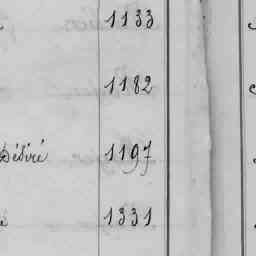 1133
1182
Désiré 1197
1331